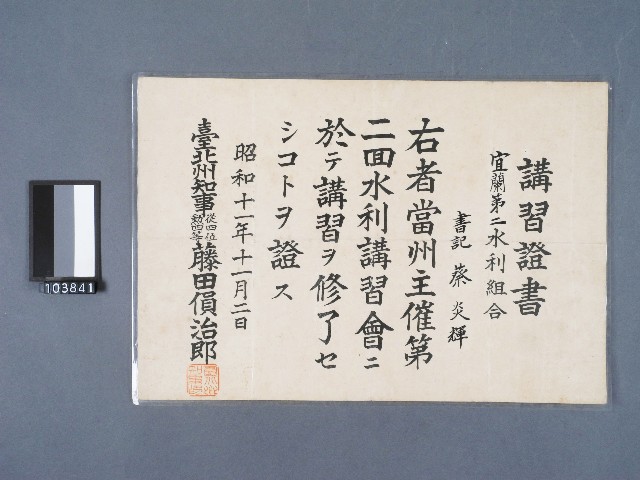 講習證書
宜蘭第二水利組合
書記 蔡炎輝
右者當州主催第
二回水利講習會ニ
於テ講習ヲ修了セ
シコトヲ證ス
昭和十一年十一月二日
臺北州知事從四位勳四等藤田傊治郎
103841